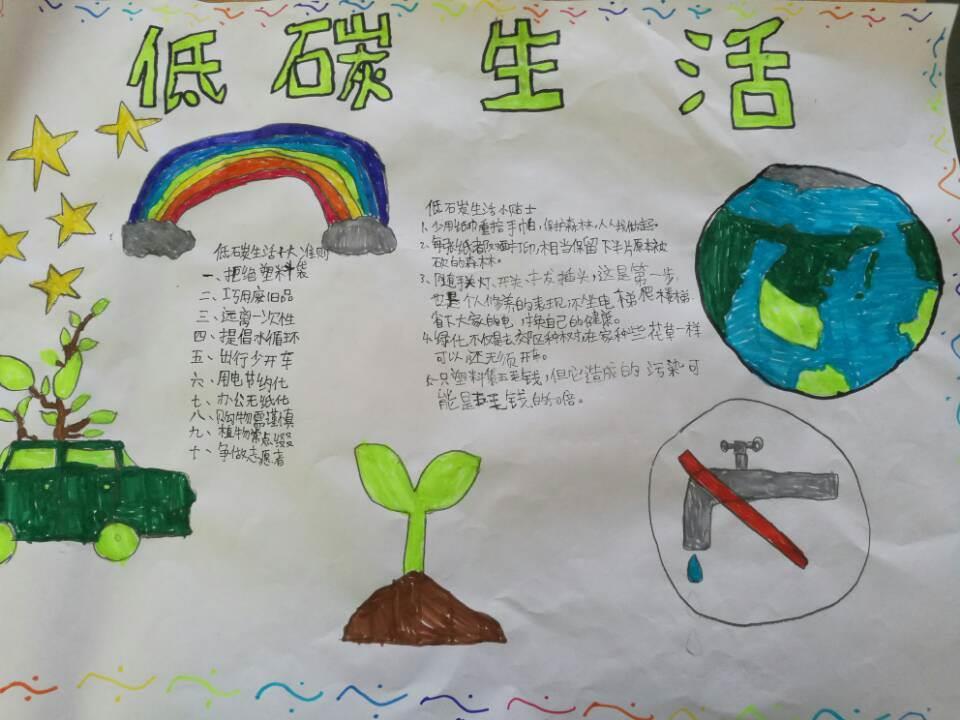 低碳生活
低碳生活十大准则
一、拒绝塑料袋
二、巧用废旧品
三、远离一次性
四、提倡水循环
五、出行少开车
六、用电节约化
七、办公无纸化
八、购物需谨慎
九、植物常点缀
十、争做志愿者
低碳生活小贴士
1、少用纸巾重拾手帕，保护森林，人人我做起。
2、每张纸都双面打印，相当保留下半片原本被
砍的森林。
3、随手关灯、开关、拔插头，这是第一步，
也是个人修养的表现，不坐电梯爬楼梯
省下大家的电，换自己的健康。
4、绿化不仅是去郊区种树，在家种些花草一样
可以，还无须开车。
5、一只塑料袋五毛钱，但它造成的污染可
能是五毛钱的倍。